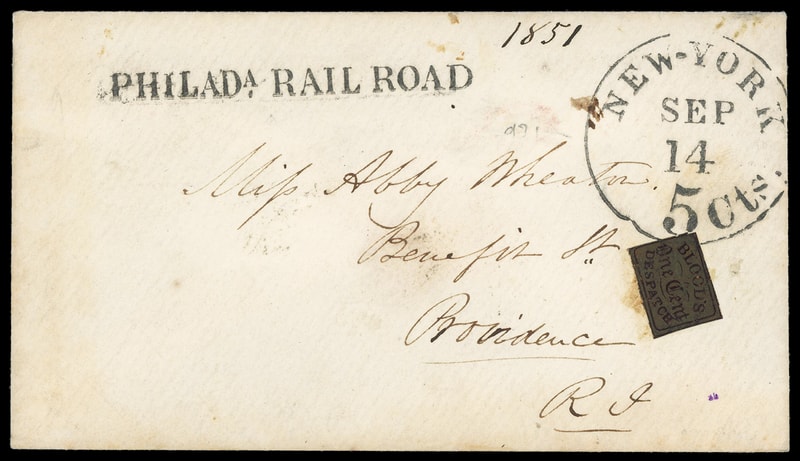 1851
PHILADA RAIL ROAD
NEW-YORK
SEP
14
5 Cts.
Miss Abby Wheaton.
Benefit St.
Providence
R I
BLOOD'S
One Cent
DESPATCH